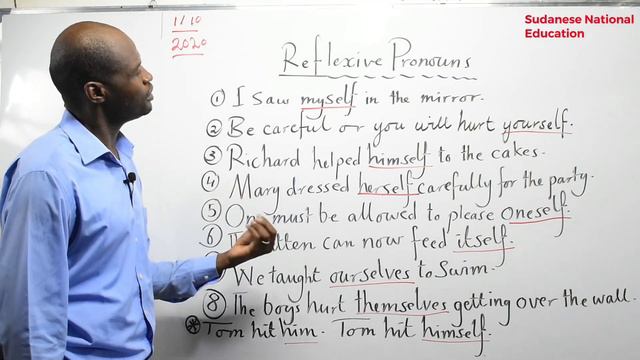 Sudanese National
Education
1/10
2020
Reflexive Pronouns
① I saw myself in the mirror.
② Be careful or you will hurt yourself.
③ Richard helped himself to the cakes.
④ Mary dressed herself carefully for the party.
⑤ One must be allowed to please oneself.
⑥ can now feed itself.
We taught ourselves to Swim.
⑧ The boys hurt themselves getting over the wall.
⊛ Tom hit him. Tom hit himself.